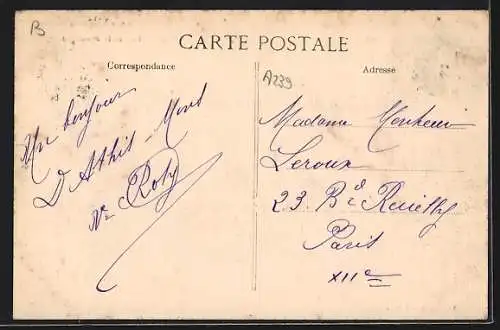 B
CARTE POSTALE
Correspondance
Un bonjour
D'Athis-Mons
Ve Roty
A239
Adresse
Madame
Leroux
23 Bd Reuilly
Paris
XIIe